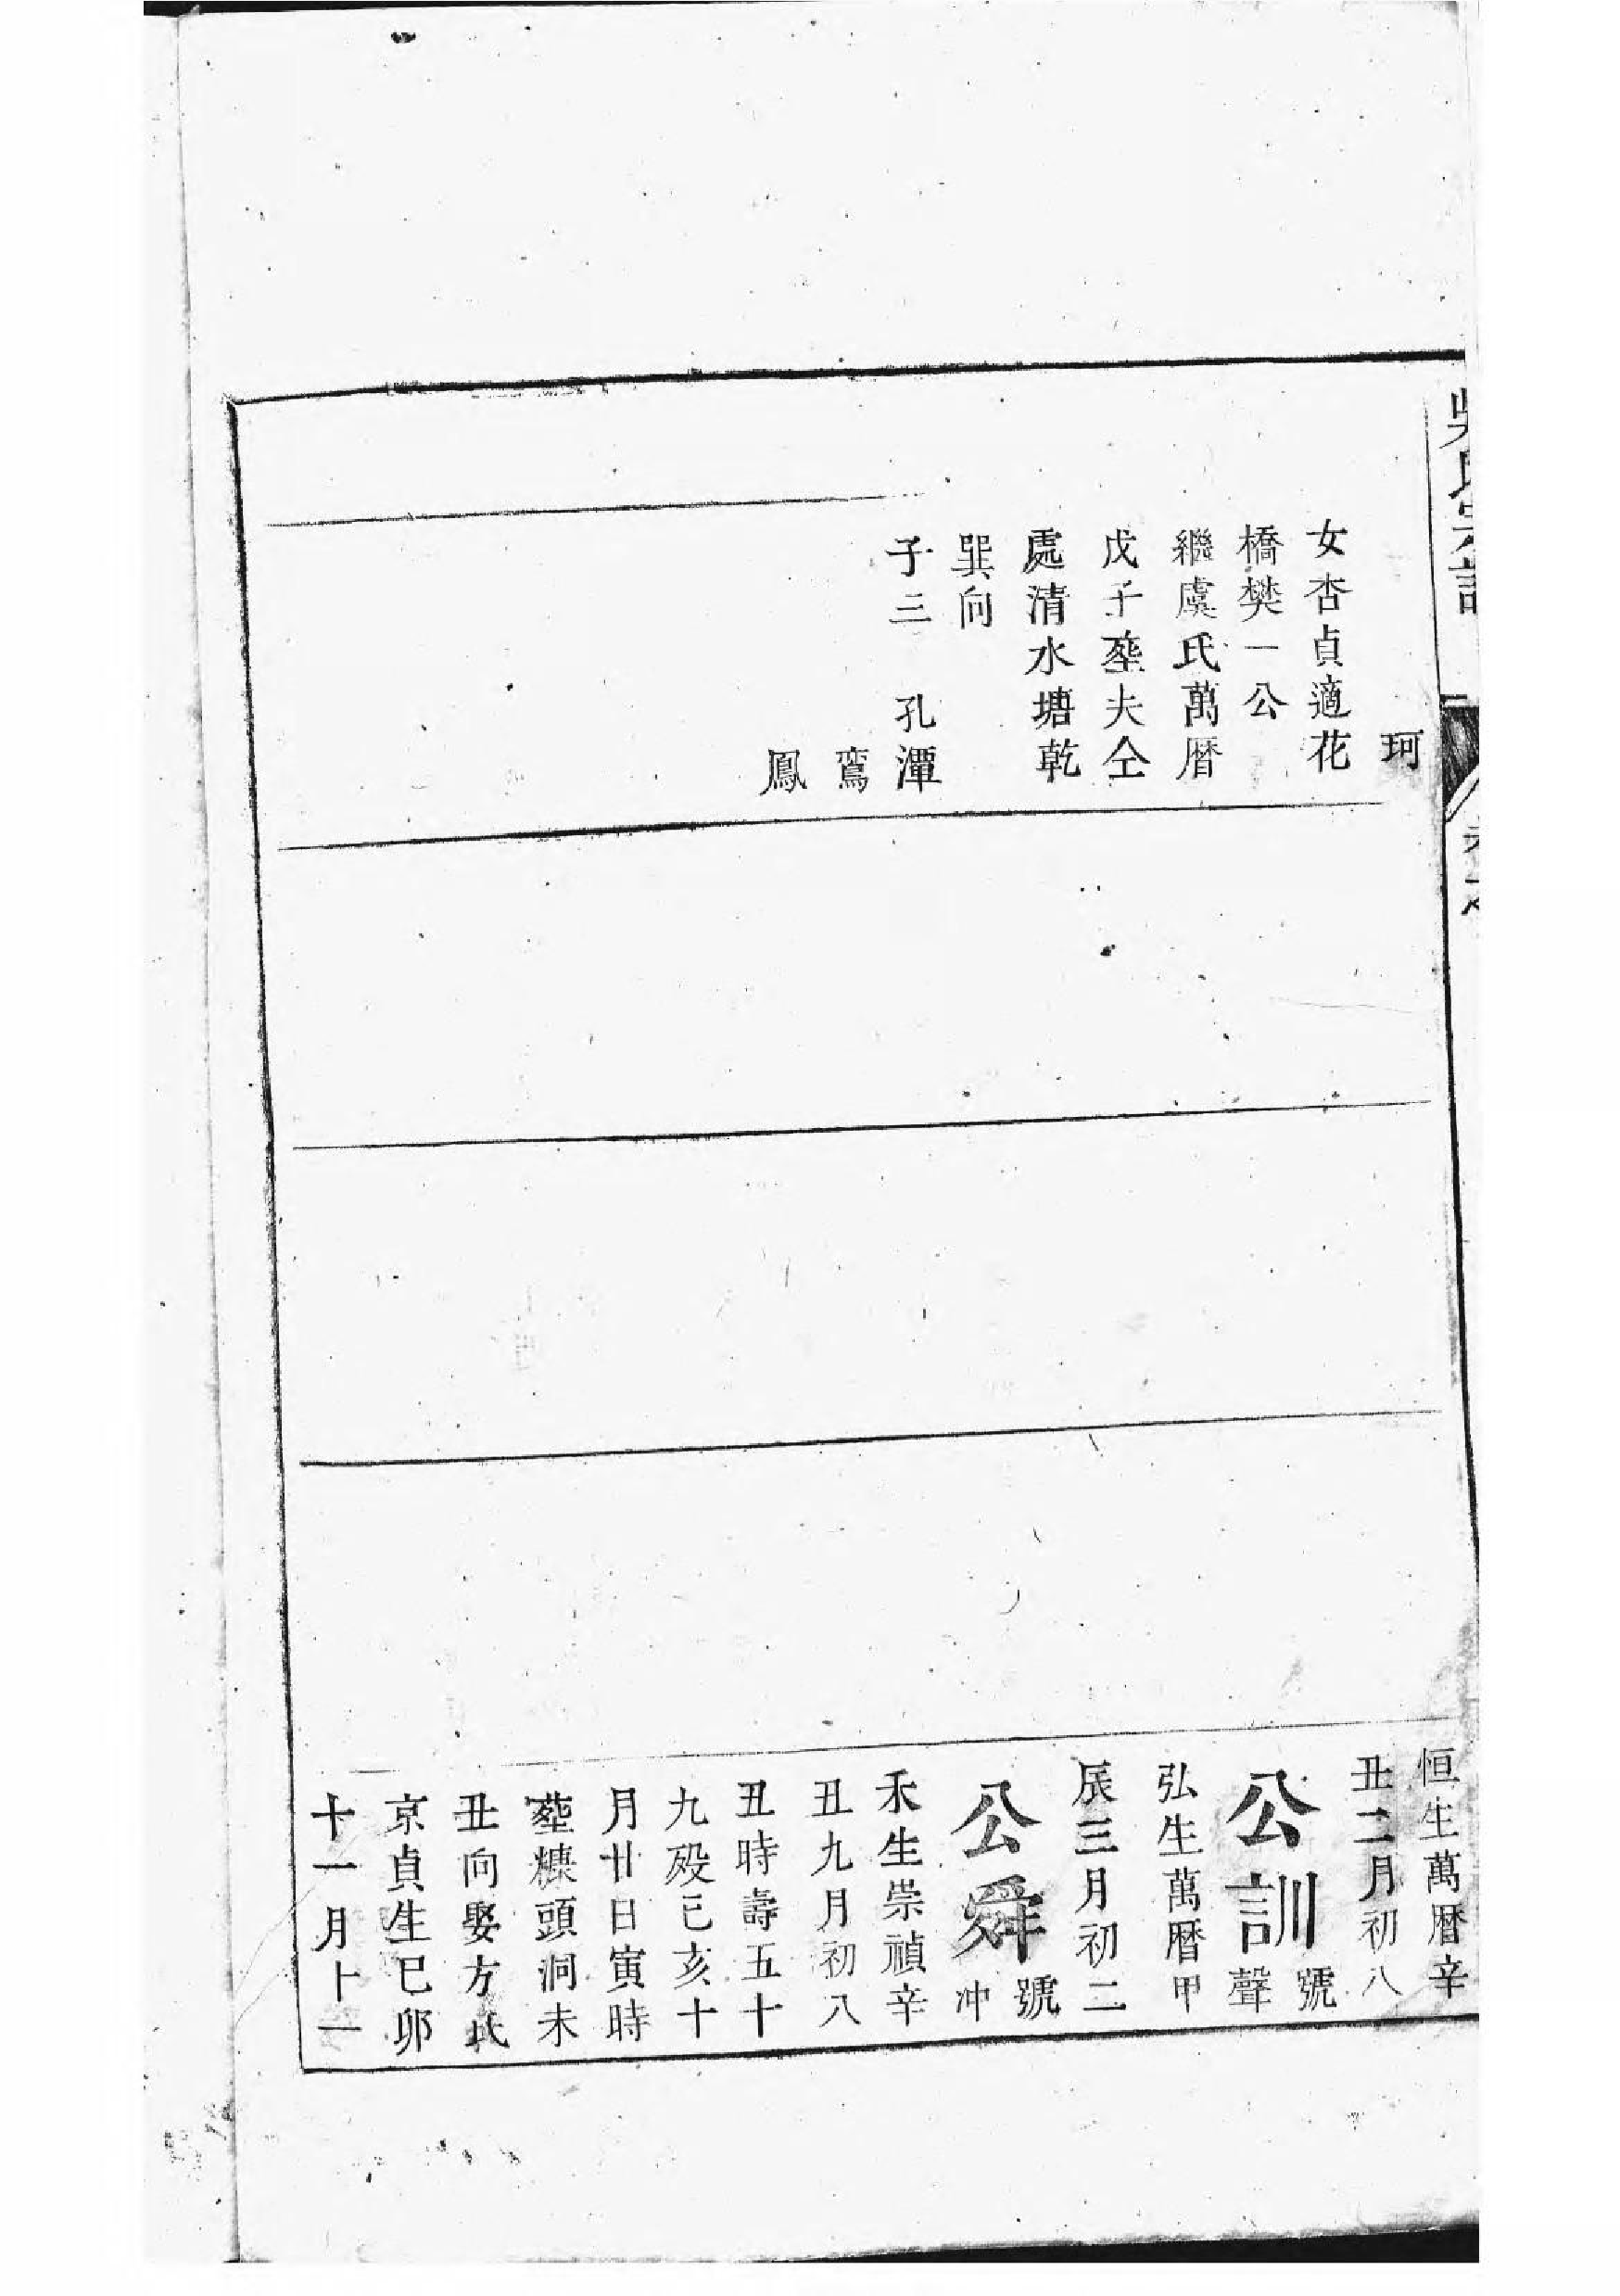 吳氏宗譜
珂
女杏貞適花
橋樊一公
繼虞氏萬曆
戊子塟夫仝
處清水塘乾
巽向
子三 孔潭
鸞
鳳
恒生萬曆辛
丑二月初八
公訓 號聲
弘生萬曆甲
辰三月初二
公舜 號冲
禾生崇禎辛
丑九月初八
丑時壽五十
九殁已亥十
月廿日寅時
塟糠頭洞未
丑向娶方氏
京貞生巳卯
十一月十一